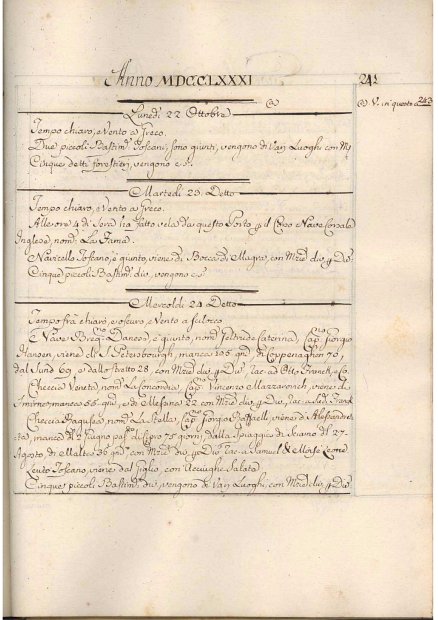 Anno MDCCLXXXI 241
@ @ V. in questo a 243
Lunedì 22 Ottobre
Tempo chiaro, e Vento a Greco.
Due piccoli Bastim.ti Toscani, sono giunti, vengono di Varj Luoghi con M
Cinque detti forestieri, vengono c. s.
Martedì 23 Detto
Tempo chiaro, e Vento a Greco.
Alle ore 4 di Sera ha fatto vela da questo Porto p il Nave Corsale
Inglese, nom. La Fama.
Navicello Toscano, è giunto, viene di Bocca di Magra, con Mzie div. p Ds.
Cinque piccoli Bastim.ti div. vengono c. s.
Mercoledì 24 Detto
Tempo frà chiaro, e oscuro, e Vento a Scilocco
Nave Danese, è giunto, nom. Caterina, Cap.no Giorgio
Hansen, viene di S. Petersbourgh, manca 105 gni, di Coppenaghen 70,
dal Sund 69, e dallo Stretto 28, con Mzie div. p Ds. rac. ad Otto Franck, e Co.
Checcia Veneta nom. La Concordia Cap.no Vincenzo Mazzarovich, viene di
Smirne manca 56 gni, e di Messina 22 con Mzie div. p Ds. rac. a Franck
Checcia Ragusea nom. La Stella, Cap. Giorgio viene di Alessandret-
ta, manca dl 2 Giugno pas. di Cipro 75 giorni, dalla Spiaggia di dl 27
Agosto, di Malta 36 gni, con Mzie div. p Ds. rac. a Samuel & Moise Leone
Leuto Toscano, viene dal Giglio, con Acciughe Salate
Cinque piccoli Bastim.ti div. vengono di Varj Luoghi, con Mzie div. p Ds.